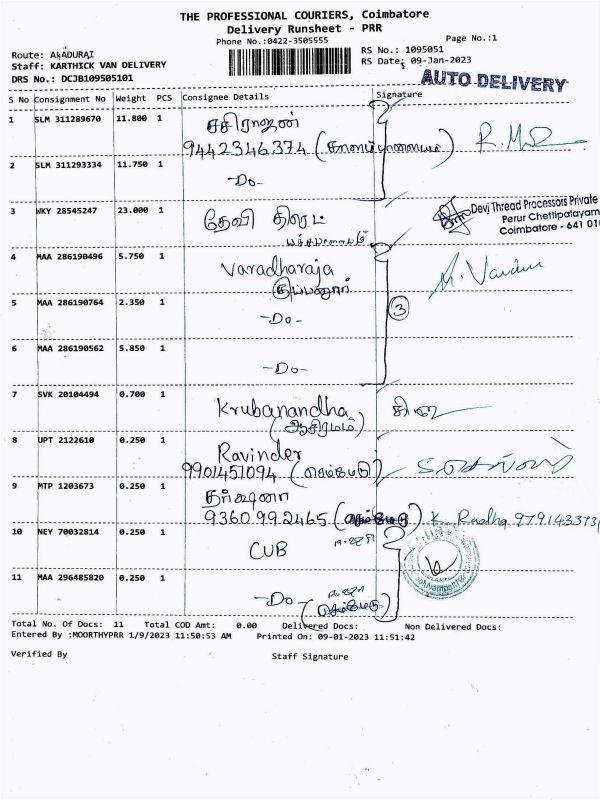 THE PROFESSIONAL COURIERS, Coimbatore
Delivery Runsheet - PRR
Phone No.:0422-3505555
Page No.:1
Route: ALADURAI
RS No.: 1095051
Staff: KARTHICK VAN DELIVERY
RS Date: 09-Jan-2023
DRS No.: DCJB109505101
AUTO DELIVERY
S No Consignment No Weight PCS Consignee Details Signature
1 SLM 311289670 11.800 1 சசிராஜன்
9442346374
2 SLM 311293334 11.750 1 -Do-
3 WKY 28545247 23.000 1 தேவி திரெட்
Devi Thread Processors Private
Perur Chettipalayam
Coimbatore - 641 010
4 MAA 286190496 5.750 1 Varadharaja
5 MAA 286190764 2.350 1 -Do- 3
6 MAA 286190562 5.850 1 -Do-
7 SVK 20104494 0.700 1 Krubanandha
(ஆசிரமம்)
8 UPT 2122610 0.250 1 Ravinder
9901451094 (செம்மேடு)
9 MTP 1203673 0.250 1 தர்ஷனா
9360992465 (செம்மேடு) K. Radha
10 NEY 70032814 0.250 1 CUB
11 MAA 296485820 0.250 1 -Do-
(செம்மேடு)
Total No. Of Docs: 11 Total COD Amt: 0.00 Delivered Docs: Non Delivered Docs:
Entered By :MOORTHYPRR 1/9/2023 11:50:53 AM Printed On: 09-01-2023 11:51:42
Verified By Staff Signature